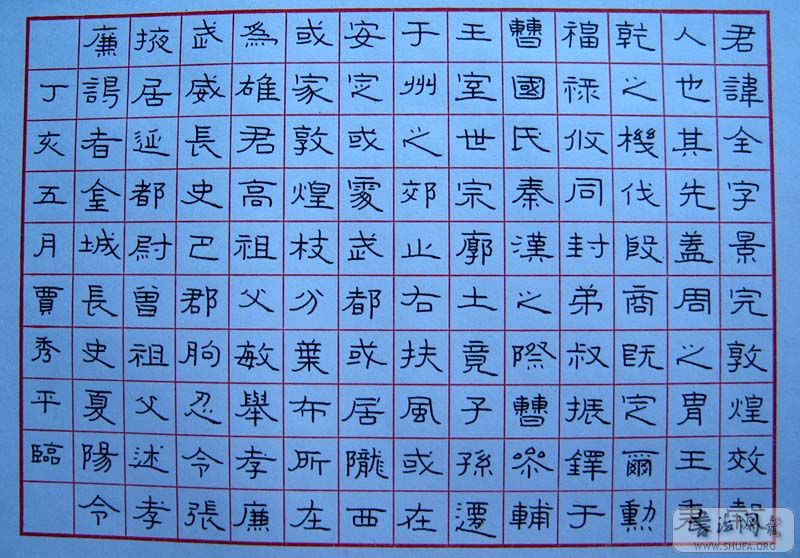 君諱全字景完敦煌效
人也其先蓋周之胄王秉
乾之機伐殷商既定爾勳
福祿攸同封弟叔振鐸于
曹國氏秦漢之際曹參輔
王室世宗廓土竟子孫遷
于州之郊止右扶風或在
安定或處武都或居隴西
或家敦煌枝分葉布所在
為雄君高祖父敏舉孝廉
武威長史巴郡朐忍令張
掖居延都尉曾祖父述孝
廉謁者金城長史夏陽令
丁亥五月賈秀平臨
WWW.SHUFA.ORG